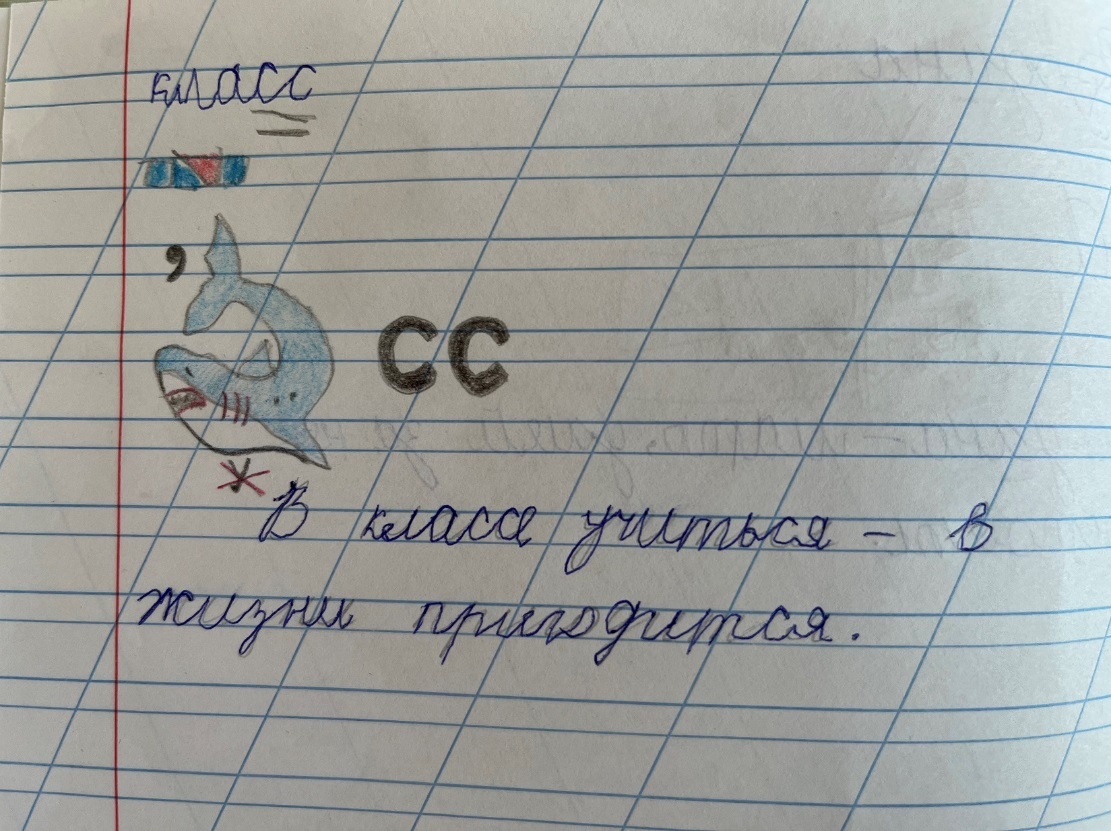 класс
,
СС
В классе учиться – в
жизни пригодится.